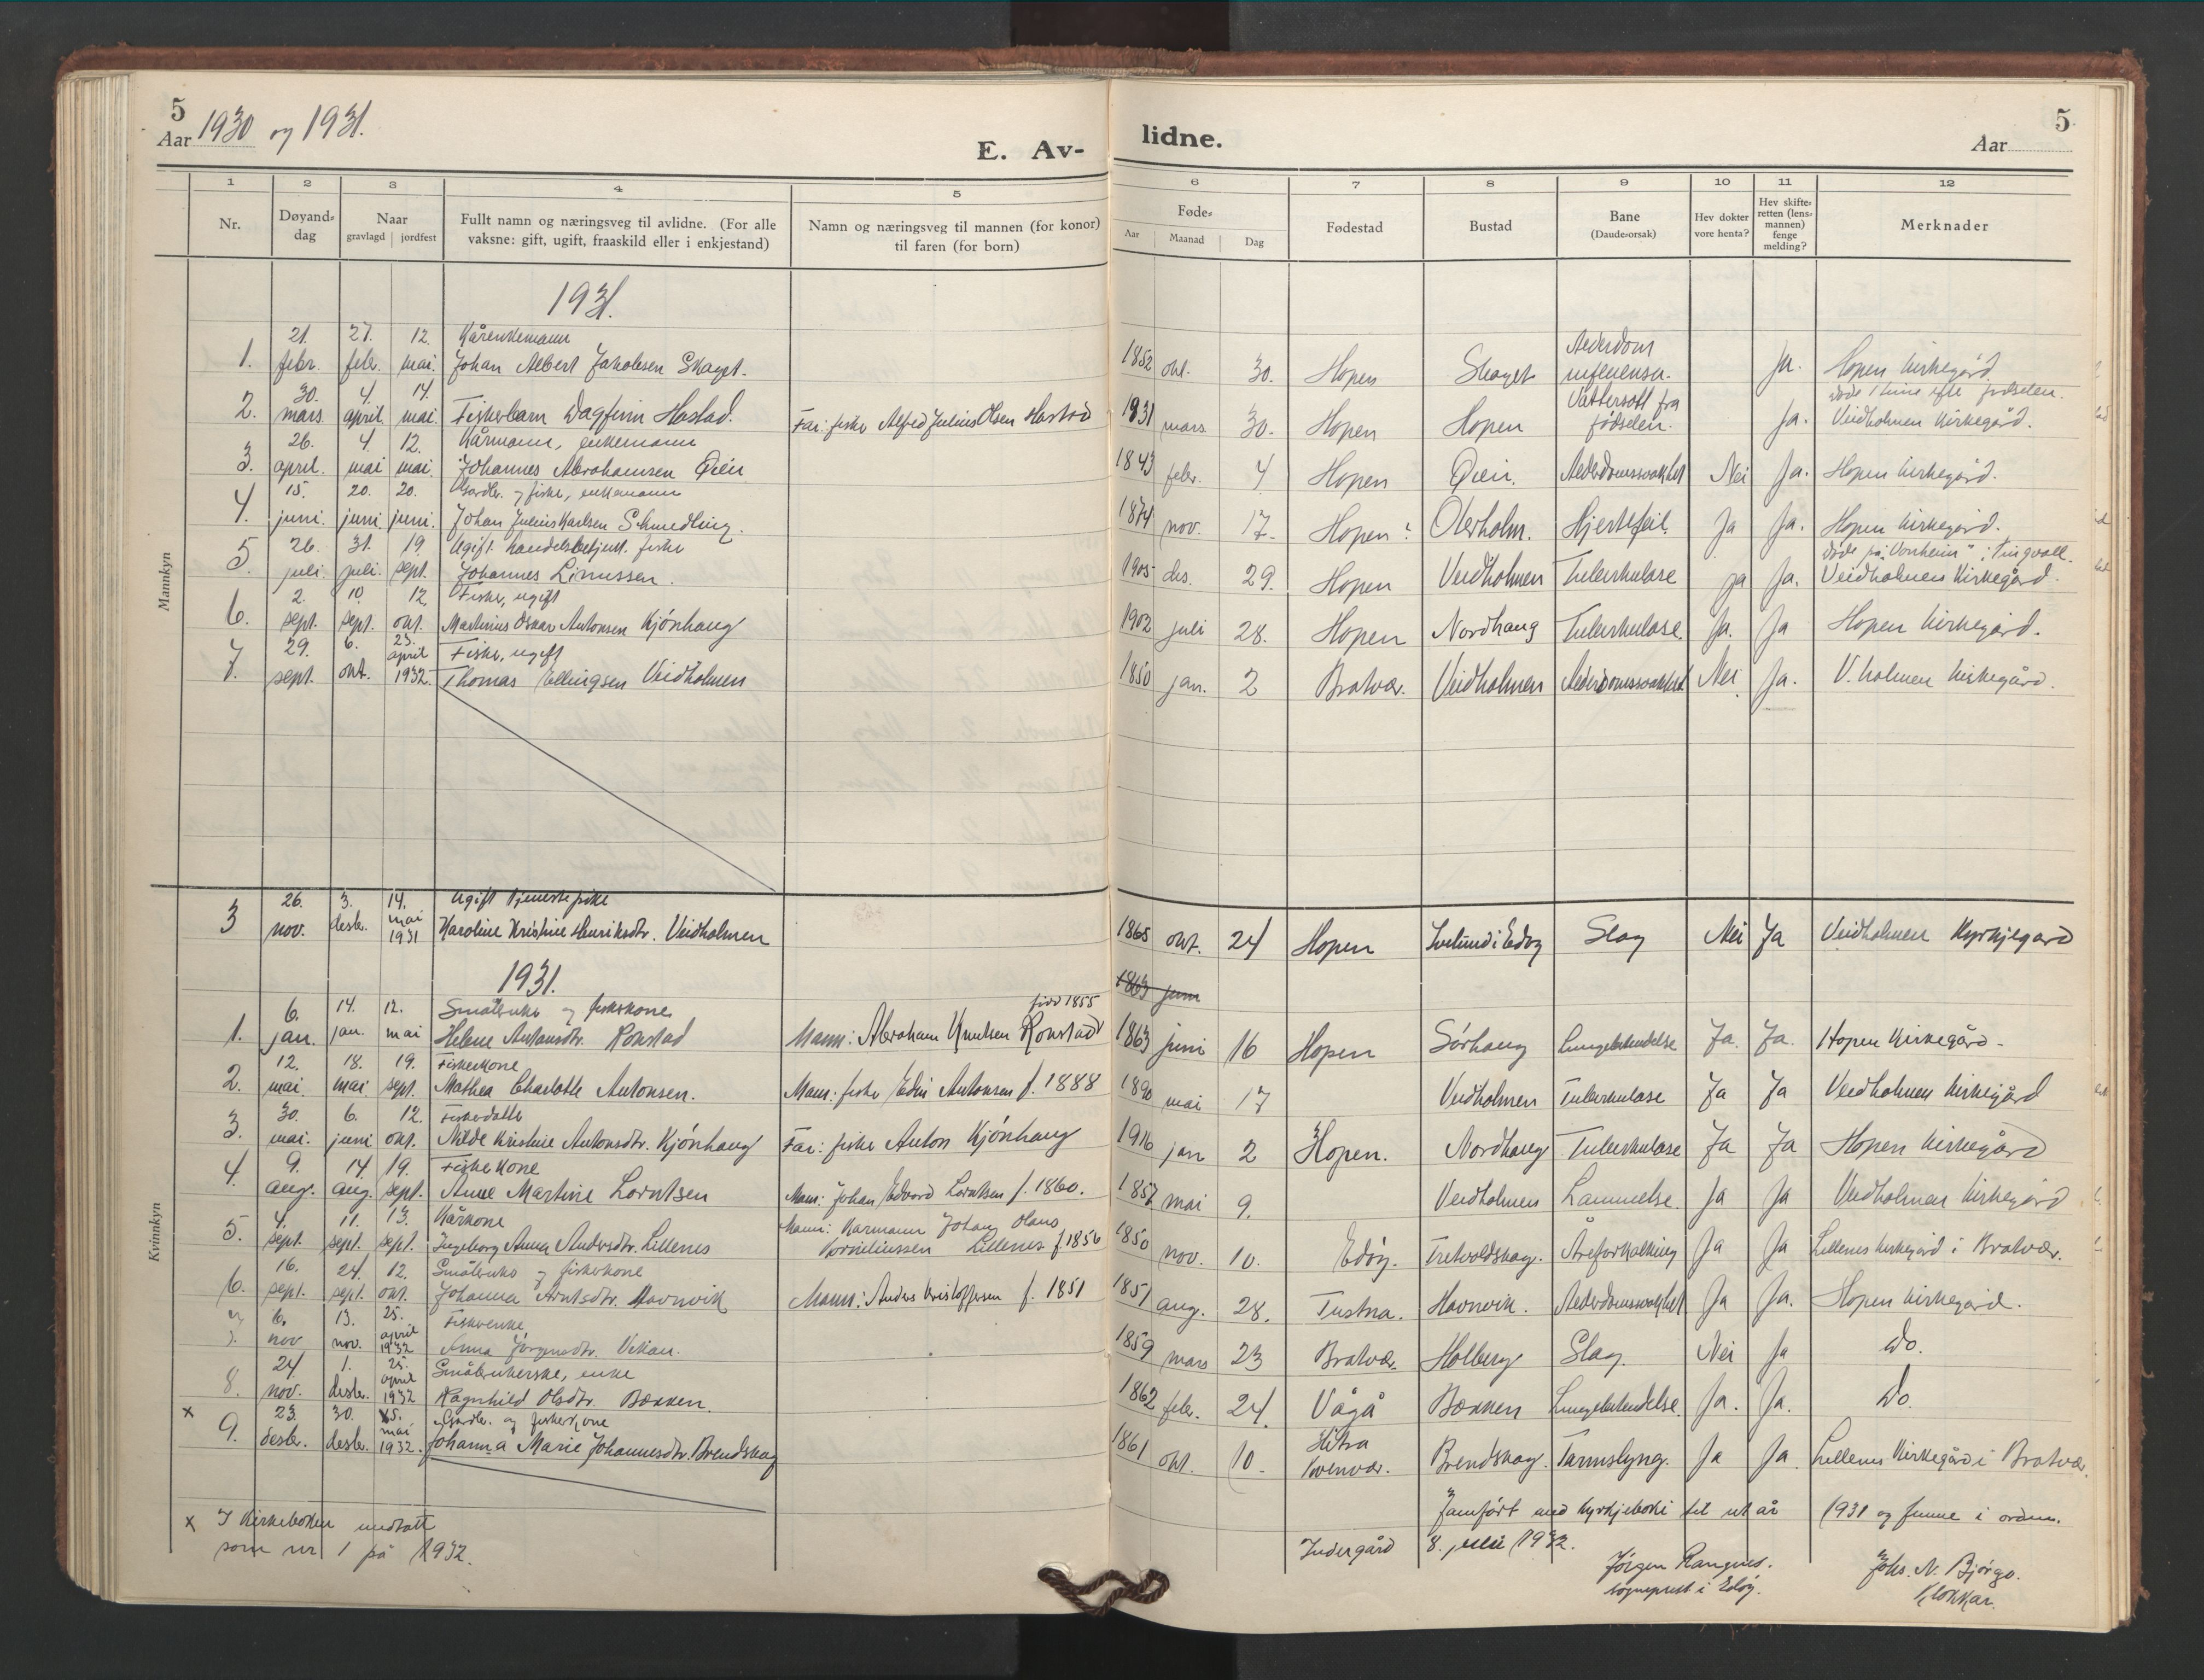 5
Aar 1930 og 1931.
E. Av-
lidne.
5
Aar
1 2 3 4 5
6 7 8 9 10 11 12
Nr. Døyand-dag Naar gravlagd jordfest Fullt namn og næringsveg til avlidne. (For alle vaksne: gift, ugift, fraaskild eller i enkjestand) Namn og næringsveg til mannen (for konor) til faren (for born)
Føde- Aar Maanad Dag Fødestad Bustad Bane (Daude-orsak) Hev dokter vore henta? Hev skifte-retten (lens-mannen) fenge melding? Merknader
Mannkyn
1931.
21. 27. 12. Kårenkemann
1. febr. febr. mai. Johan Albert Jakobsen Skaget. 1852 okt. 30. Hopen Skaget Alderdom influensa. Ja. Hopen kirkegård.
30. 4. 14. døde 1 time efter fødselen.
2. mars april mai Fiskerbarn Dagfinn Hastad. Far: fisker Alfred Julius Olsen Hastad 1931 mars 30. Hopen Hopen Vattersott fra fødselen. Ja. Veidholmen Kirkegård.
26. 4. 12. Kårmann, enkemann
3. april. mai mai Johannes Abrahamsen Øien 1843 febr. 4 Hopen Øien. Alderdomssvakhet Nei Ja. Hopen kirkegård.
15. 20. 20. Gardbr. og fisker, enkemann
4. juni. juni juni. Johan Julius Karlsen Schmedling. 1874 nov. 17. Hopen? Olerholm. Hjertefeil. Ja Ja. Hopen kirkegård.
26. 31. 19. Ugift handelsbetjent. fisker døde på "Vonheim" i Tingvoll.
5 juli juli. sept. Johannes Linussen. 1905 des. 29. Hopen Veidholmen Tuberkulose ja Ja. Veidholmen Kirkegård.
2. 10. 12. Fisker, ugift
6. sept. sept. okt. Martinius Oskar Antonsen Kjónhaug 1902 juli 28. Hopen Nordhaug Tuberkulose. Ja. Ja Hopen kirkegård.
29. 6. 23. april Fisker, ugift
7. sept. okt. 1932. Thomas Ellingsen Veidholmen 1850 jan. 2 Bratvær. Veidholmen Alderdomssvakhet Nei Ja. V. holmen kirkegård.
Kvinnkyn
26. 3. 14. Ugift tjenestepike
3 nov. desbr. mai 1931 Karoline Kristine Henriksdtr. Veidholmen 1865 okt. 24 Hopen i Edøy Slag Nei Ja Veidholmen Kyrkjegard
1931. 1863 juni
6. 14. 12. Småbruker og fiskerkone født 1855
1. jan. jan. mai Helene Antonsdtr. Rokstad Mann: Abraham Knutsen Rokstad 1863 juni 16 Hopen Sørhaug Lungebetendelse Ja. Ja. Hopen Kirkegård.
12. 18. 19. Fiskerkone
2. mai. mai sept. Mathea Charlotte Antonsen. Mann: fisker Edin Antonsen f. 1888 1890 mai 17 Veidholmen Tuberkulose Ja Ja Veidholmen Kirkegård
30. 6. 12. Fiskerdatter
3. mai. juni okt. Nilde Kristine Antonsdtr. Kjónhaug Far: fisker Anton Kjónhaug 1916 jan 2 Hopen. Nordhaug Tuberkulose Ja Ja Hopen kirkegård
9. 14 19. Fiskerkone
4. aug. aug. sept. Anne Martine Lorntsen Mann: Johan Edvard Lorntsen f. 1860. 1857 mai 9. Veidholmen Lammelse. Ja Ja Veidholmen kirkegård
4. 11. 13. Kårkone Mann: Kårmann Johan Olaus
5. sept. sept. sept. Ingeborg Anna Andersdtr. Lillenes Korneliussen Lillenes f 1856 1850 nov. 10. Edöy. Tretvoldskag. Åreforkalkning Ja Ja Lillenes kirkegård i Bratvær.
16. 24. 12. Småbruker og fiskerkone
6. sept. sept. okt. Johanna Arntsdtr. Havnvik Mann: Anders Kristoffersen f. 1851 1851 aug. 28. Tustna. Havnvik. Alderdomssvakhet Ja Ja. Hopen kirkegård.
6. 13. 25. april Fiskerenke
7. nov nov. 1932 Anna Jørgensdtr. Vikan. 1859 mars 23 Bratvær. Holberg Slag. Nei Ja do.
24 1. 25. april Småbrukerske, enke
8. nov. desbr. 1932 Ragnhild Olsdtr. Bækken. 1862 febr. 24. Vågå Bækken Lungebetendelse. Ja. Ja. do.
x 23. 30. 15. mai Gardbr. og fiskerkone
9. desbr. desbr. 1932. Johanna Marie Johannesdtr. Brendskag 1861 okt. 10. Hitra Kvenvær. Brendskag. Tarmslyng. Ja Ja. Lillenes Kirkegård i Bratvær.
x I Kirkeboken inntatt
som nr 1 på 1932.
Jamført med kyrkjeboki til ut år 1931 og funne i orden.
Indergård 8. juli 1932.
Jörgen Rangnes.
sogneprest i Edöy.
Johs. N. Bjørgo.
Klokkar.